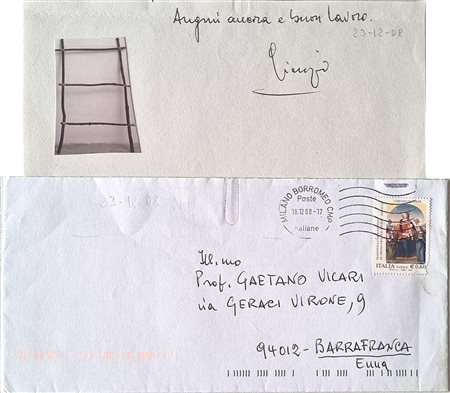 Auguri ancora e buon lavoro.
23-12-08
23-12-08
MILANO BORROMEO CMP
Poste
18.12.08-17
italiane
ITALIA € 0,60
Ill.mo
Prof. GAETANO VICARI
via GERACI VIRONE, 9
94012-BARRAFRANCA
Enna